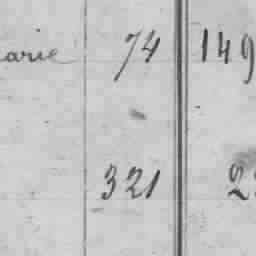 arie 74 149
321 2